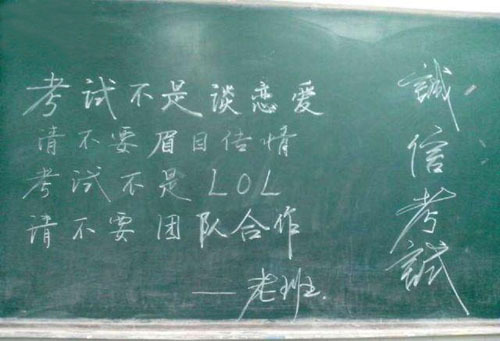 考试不是谈恋爱
请不要眉目传情
考试不是LOL
请不要团队合作
——老班.
誠信考試